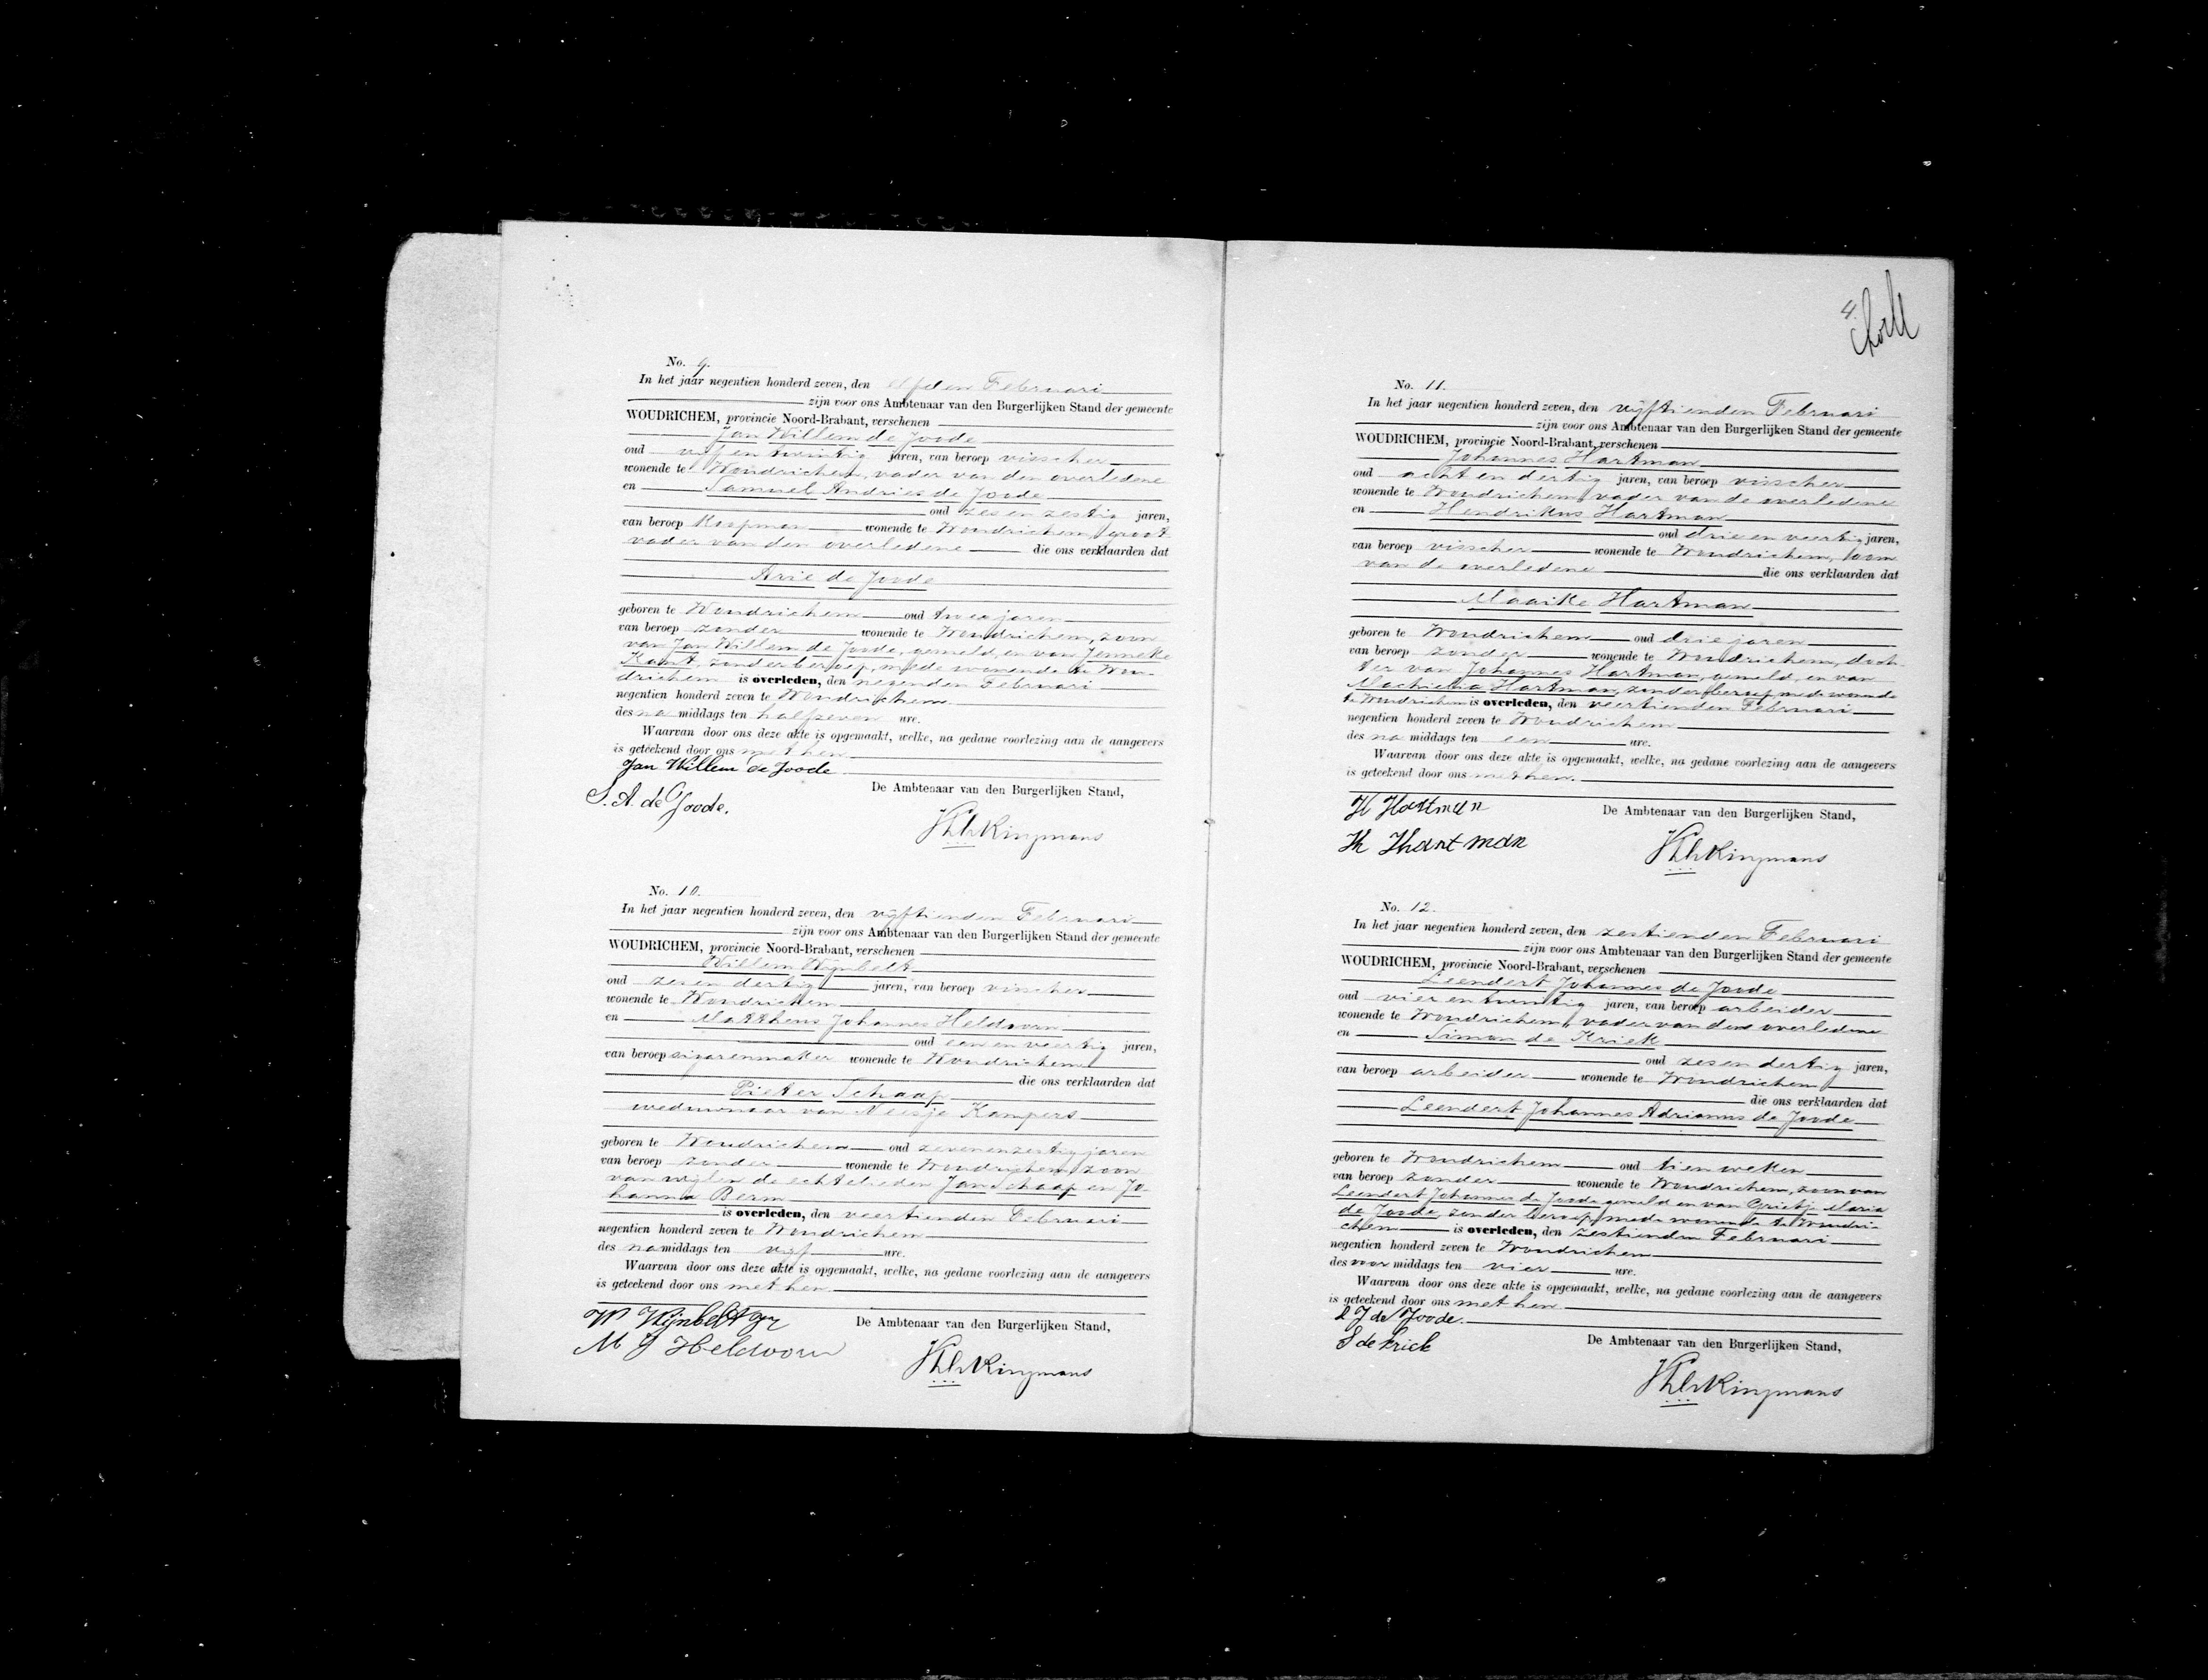 No. 9.
In het jaar negentien honderd zeven, den elfden Februari
zijn voor ons Ambtenaar van den Burgerlijken Stand der gemeente
WOUDRICHEM, provincie Noord-Brabant, verschenen
Jan Willem de Joode
oud vijf en twintig jaren, van beroep visscher
wonende te Woudrichem, vader van den overledene
en Samuel Andries de Joode
oud zes en zestig jaren,
van beroep Koopman wonende te Woudrichem, groot
vader van den overledene die ons verklaarden dat
Arie de Joode
geboren te Woudrichem oud twee jaren
van beroep zonder wonende te Woudrichem, zoon
van Jan Willem de Joode, gemeld, en van Jenneke
Kant, zonder beroep, mede wonende te Wou-
drichem is overleden, den negenden Februari
negentien honderd zeven te Woudrichem
des na middags ten half zeven ure.
Waarvan door ons deze akte is opgemaakt, welke, na gedane voorlezing aan de aangevers
is geteekend door ons met hen
Jan Willem de Joode
De Ambtenaar van den Burgerlijken Stand,
S. A. de Joode.
Kingmans
No. 10.
In het jaar negentien honderd zeven, den vijftienden Februari
zijn voor ons Ambtenaar van den Burgerlijken Stand der gemeente
WOUDRICHEM, provincie Noord-Brabant, verschenen
Willem Wijnbelt
oud zes en dertig jaren, van beroep visscher
wonende te Woudrichem
en Mattheus Johannes Heldoorn
oud een en veertig jaren,
van beroep sigarenmaker wonende te Woudrichem
die ons verklaarden dat
Pieter Schaap
weduwnaar van Neesje Kampers
geboren te Woudrichem oud zevenenzestig jaren
van beroep zonder wonende te Woudrichem, zoon
van wijlen de echtelieden Jan Schaap en Jo-
hanna Berm
is overleden, den veertienden Februari
negentien honderd zeven te Woudrichem
des na middags ten vijf ure.
Waarvan door ons deze akte is opgemaakt, welke, na gedane voorlezing aan de aangevers
is geteekend door ons met hen
W Wijnbelt
De Ambtenaar van den Burgerlijken Stand,
M J Heldoorn
Kingmans
4.
No. 11.
In het jaar negentien honderd zeven, den vijftienden Februari
zijn voor ons Ambtenaar van den Burgerlijken Stand der gemeente
WOUDRICHEM, provincie Noord-Brabant, verschenen
Johannes Hartman
oud acht en dertig jaren, van beroep visscher
wonende te Woudrichem, vader van de overledene
en Hendrikus Hartman
oud drie en veertig jaren,
van beroep visscher wonende te Woudrichem, oom
van de overledene die ons verklaarden dat
Maaike Hartman
geboren te Woudrichem oud drie jaren
van beroep zonder wonende te Woudrichem, doch-
ter van Johannes Hartman, gemeld, en van
Machielia Hartman, zonder beroep, mede wonende
te Woudrichem is overleden, den veertienden Februari
negentien honderd zeven te Woudrichem
des na middags ten een ure.
Waarvan door ons deze akte is opgemaakt, welke, na gedane voorlezing aan de aangevers
is geteekend door ons met hen
H Hartman
De Ambtenaar van den Burgerlijken Stand,
Hartman
Kingmans
No. 12.
In het jaar negentien honderd zeven, den zestienden Februari
zijn voor ons Ambtenaar van den Burgerlijken Stand der gemeente
WOUDRICHEM, provincie Noord-Brabant, verschenen
Leendert Johannes de Joode
oud vier en twintig jaren, van beroep arbeider
wonende te Woudrichem, vader van den overledene
en Simon de Kriek
oud zes en dertig jaren,
van beroep arbeider wonende te Woudrichem
die ons verklaarden dat
Leendert Johannes Adrianus de Joode
geboren te Woudrichem oud tien weken
van beroep zonder wonende te Woudrichem, zoon van
Leendert Johannes de Joode gemeld en van Grietje Maria
de Joode, zonder beroep, mede wonende te Woudri-
chem is overleden, den zestienden Februari
negentien honderd zeven te Woudrichem
des voor middags ten vier ure.
Waarvan door ons deze akte is opgemaakt, welke, na gedane voorlezing aan de aangevers
is geteekend door ons met hen
L J de Joode.
De Ambtenaar van den Burgerlijken Stand,
S de kriek
Kingmans